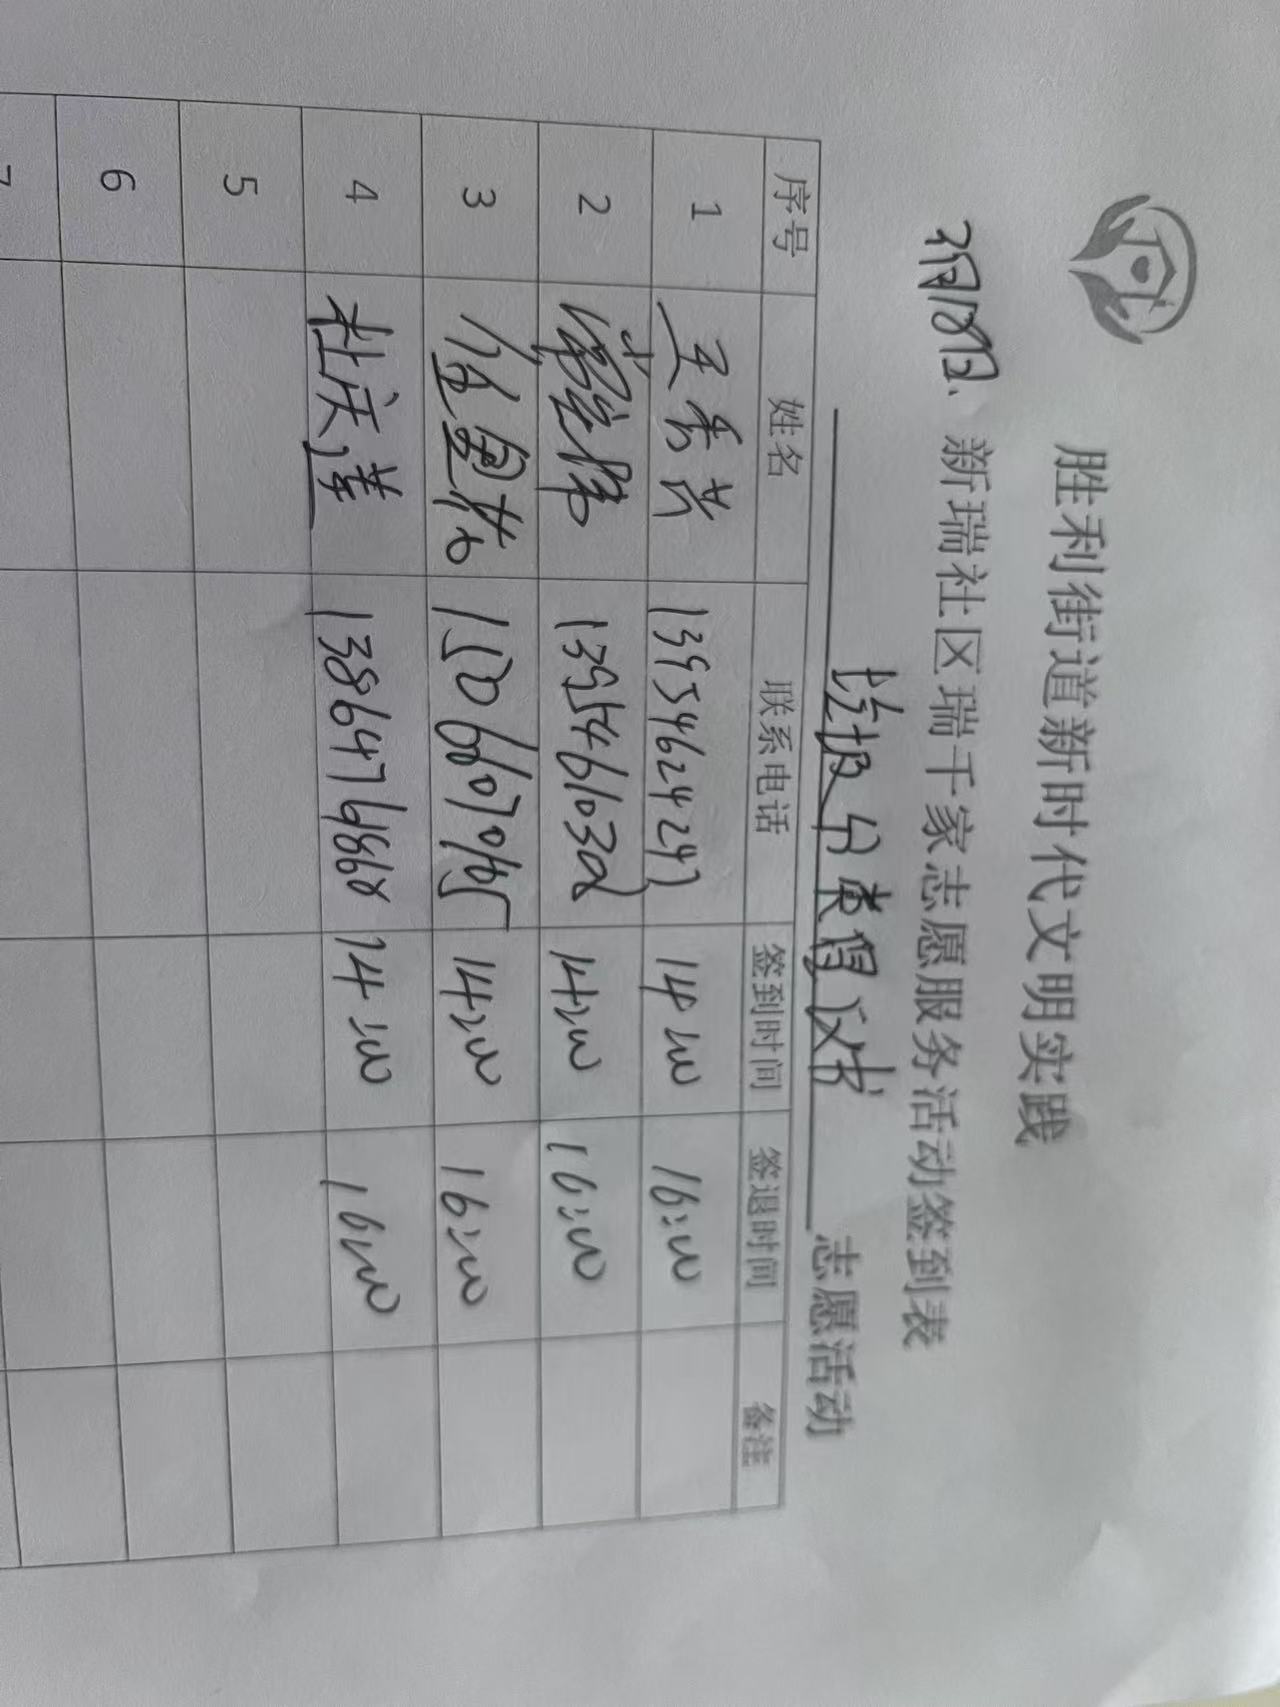 胜利街道新时代文明实践
7月18日、新瑞社区瑞千家志愿服务活动签到表
垃圾分类 志愿活动
序号 姓名 联系电话 签到时间 签退时间 备注
1 王秀兰 13954624247 14:00 16:00
2 13954661032 14:00 16:00
3 14:00 16:00
4 杜庆莲 13864769868 14:00 16:00
5
6
7